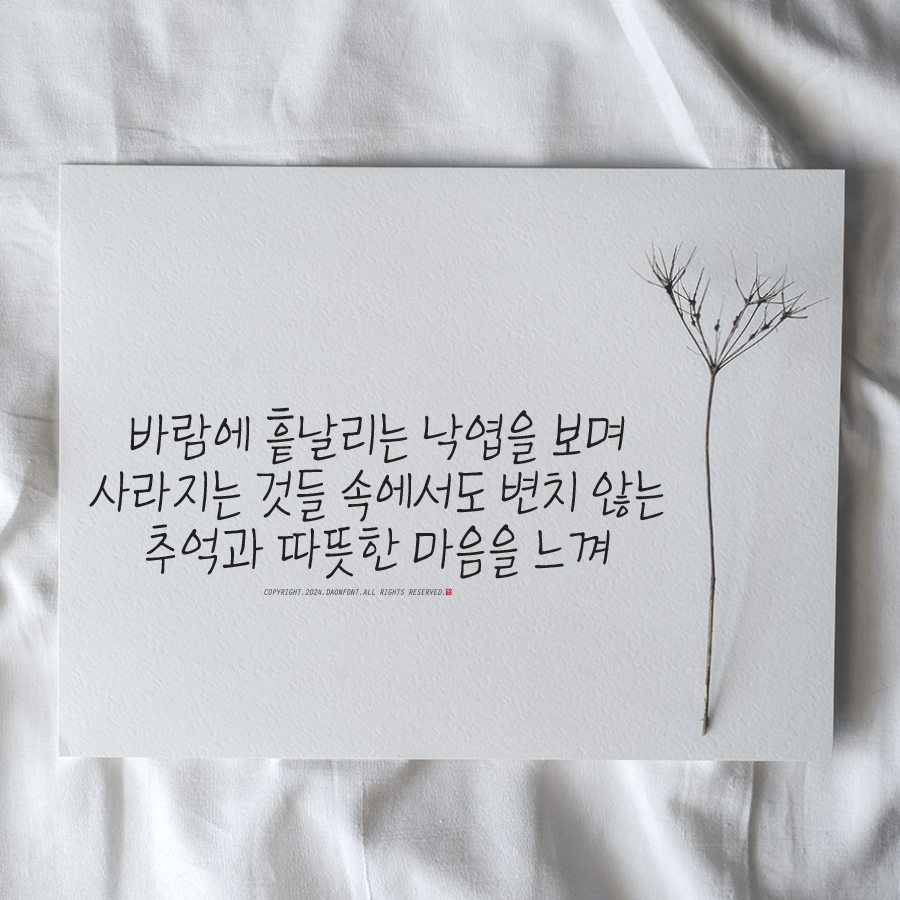 바람에 흩날리는 낙엽을 보며
사라지는 것들 속에서도 변치 않는
추억과 따뜻한 마음을 느껴
COPYRIGHT.2024.DAONFONT.ALL RIGHTS RESERVED.